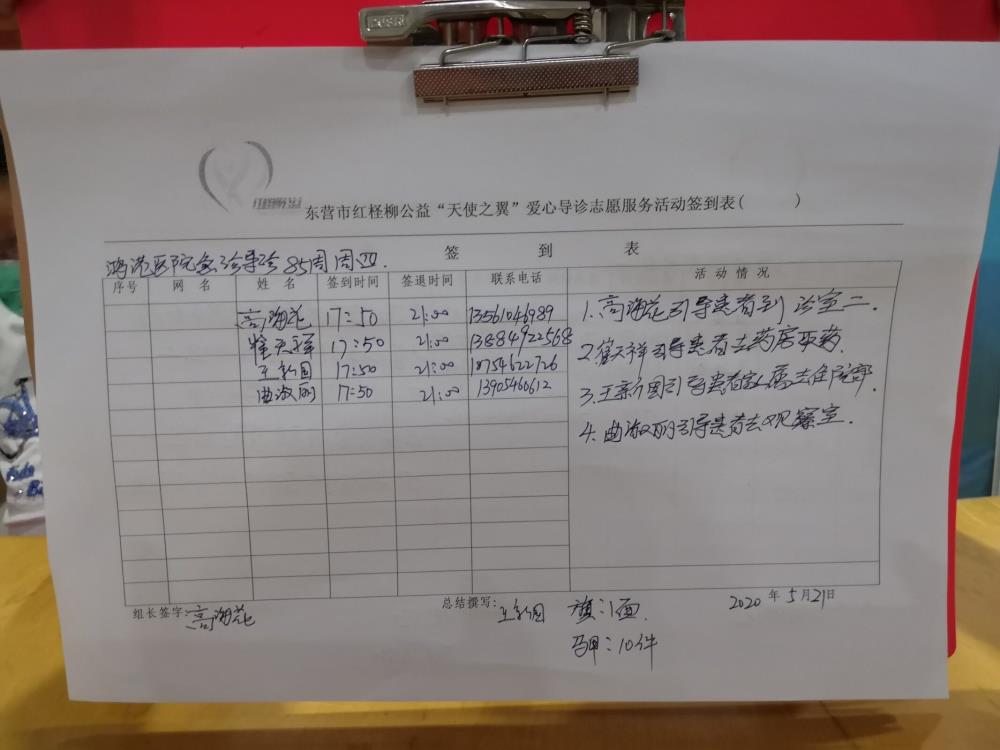 东营市红柽柳公益“天使之翼”爱心导诊志愿服务活动签到表( )
签 到 表
鸿港医院急诊导诊85周周四.
序号 网 名 姓 名 签到时间 签退时间 联系电话 活 动 情 况
高海花 17:50 21:00 13561046989
17:50 21:00 13884922568
王新图 17:50 21:00 18754622726
曲淑丽 17:50 21:00 13905460612
1.高海花引导患者到诊室二.
2.翟天祥引导患者去药房取药.
3.王新图引导患者家属去住院部.
4.曲淑丽引导患者去观察室.
组长签字:高海花
总结撰写:王新图
旗:1面.
马甲:10件
2020年5月21日